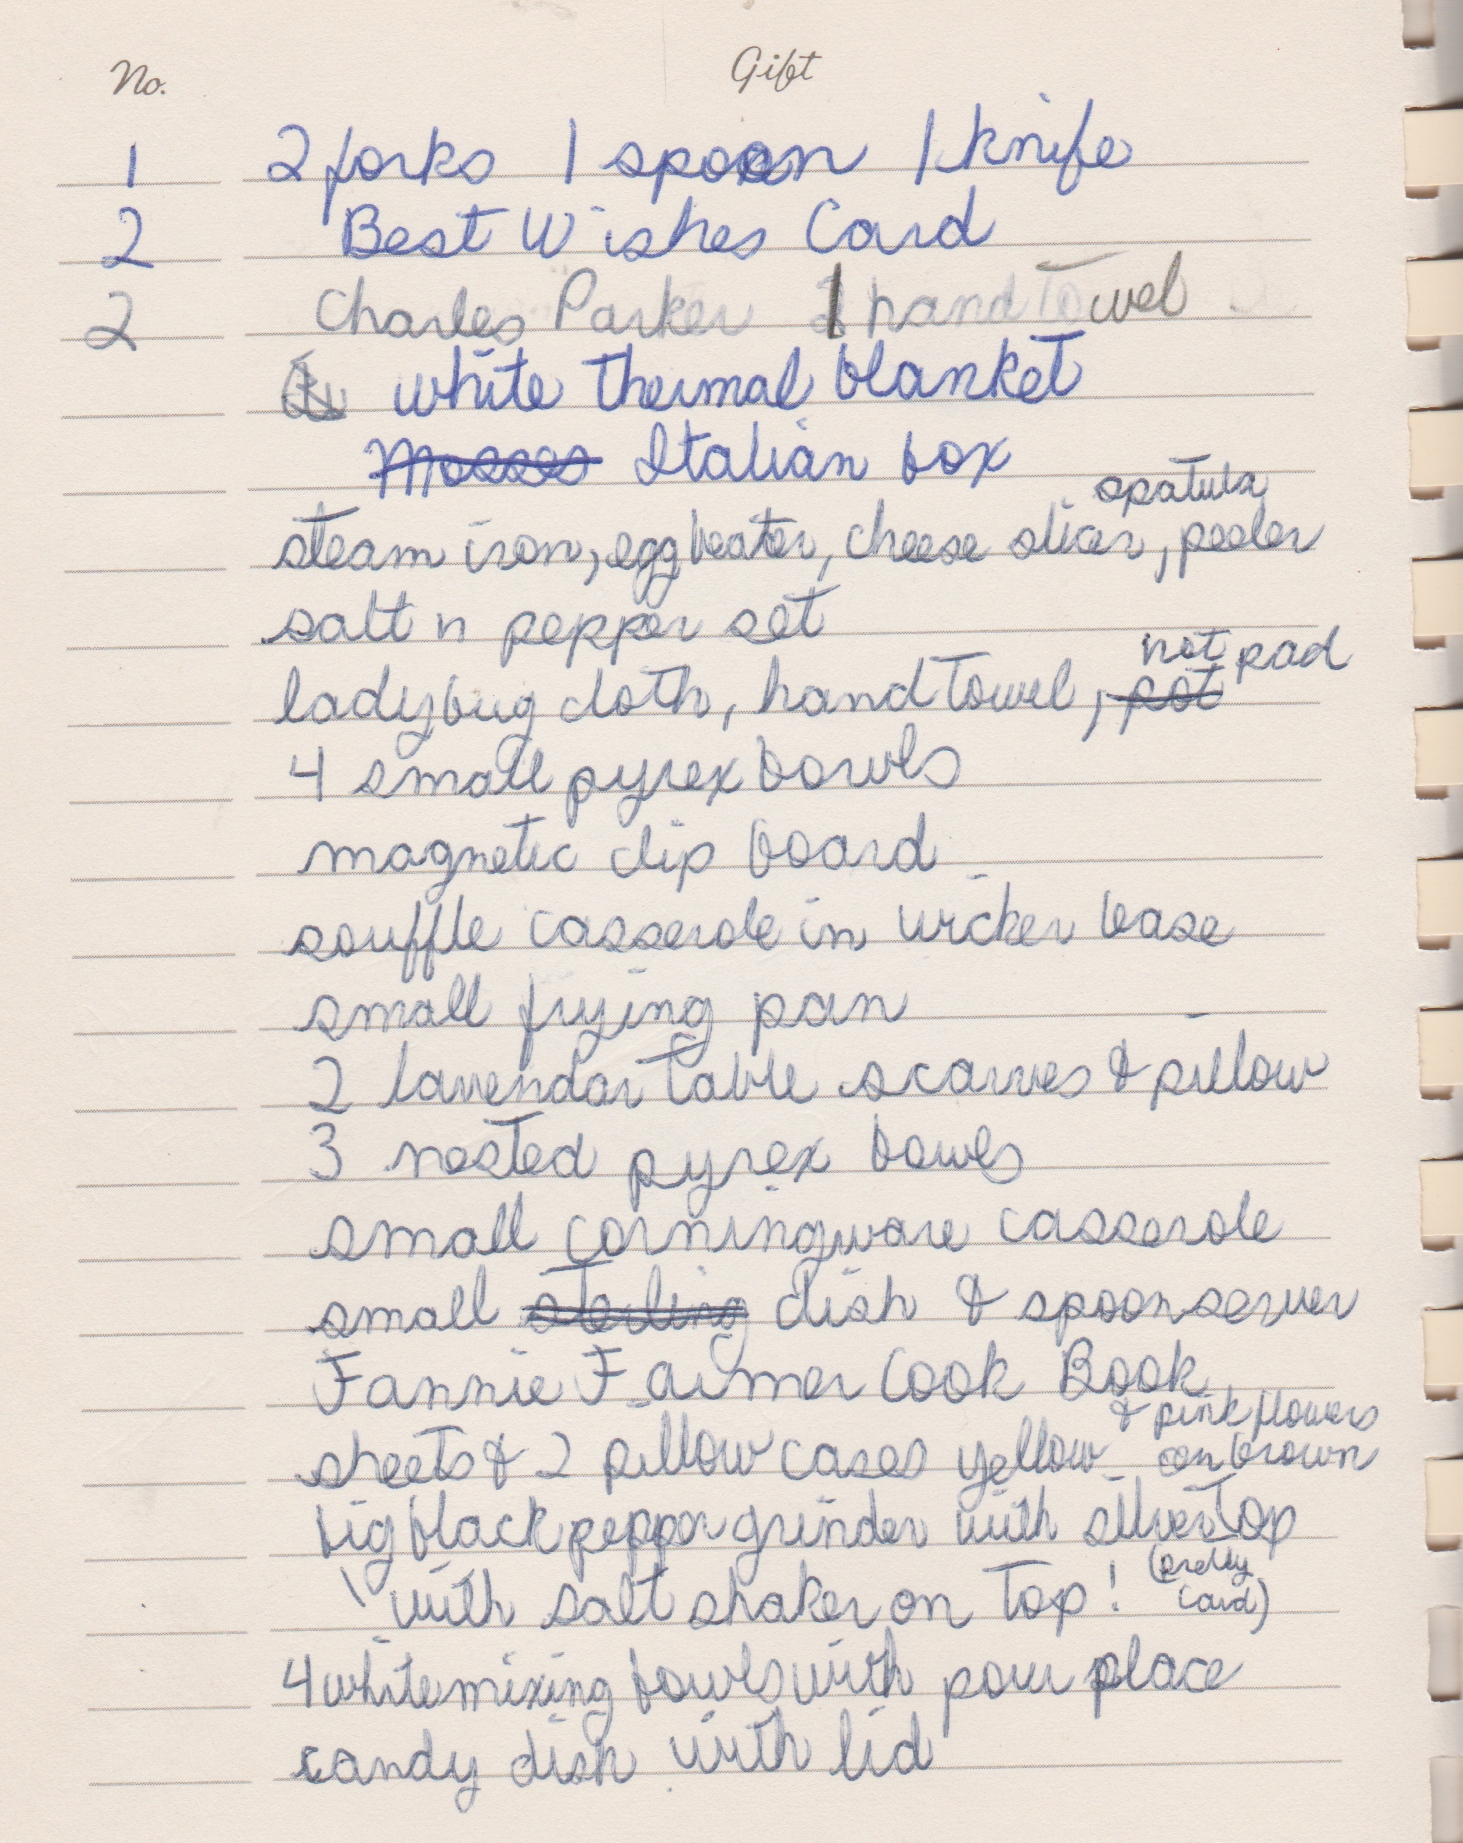 No. Gift
1 2 forks 1 spoon 1 knife
2 Best Wishes Card
2 Charles Parker 1 hand Towel
white thermal blanket
Mosses Italian box
spatula
steam iron, egg beater, cheese slicer, peeler
salt n pepper set
hot pad
ladybug cloth, hand Towel, pot
4 small pyrex bowls
magnetic clip board
souffle casserole in wicker base
small frying pan
2 lavendar table scarves & pillow
3 nested pyrex bowls
small corningware casserole
small sterling dish & spoon server
Fannie Farmer Cook Book
& pink flowers
sheets & 2 pillow cases yellow on brown
big black pepper grinder with silver Top
(pretty
with salt shaker on Top! card)
4 white mixing bowls with pour place
candy dish with lid